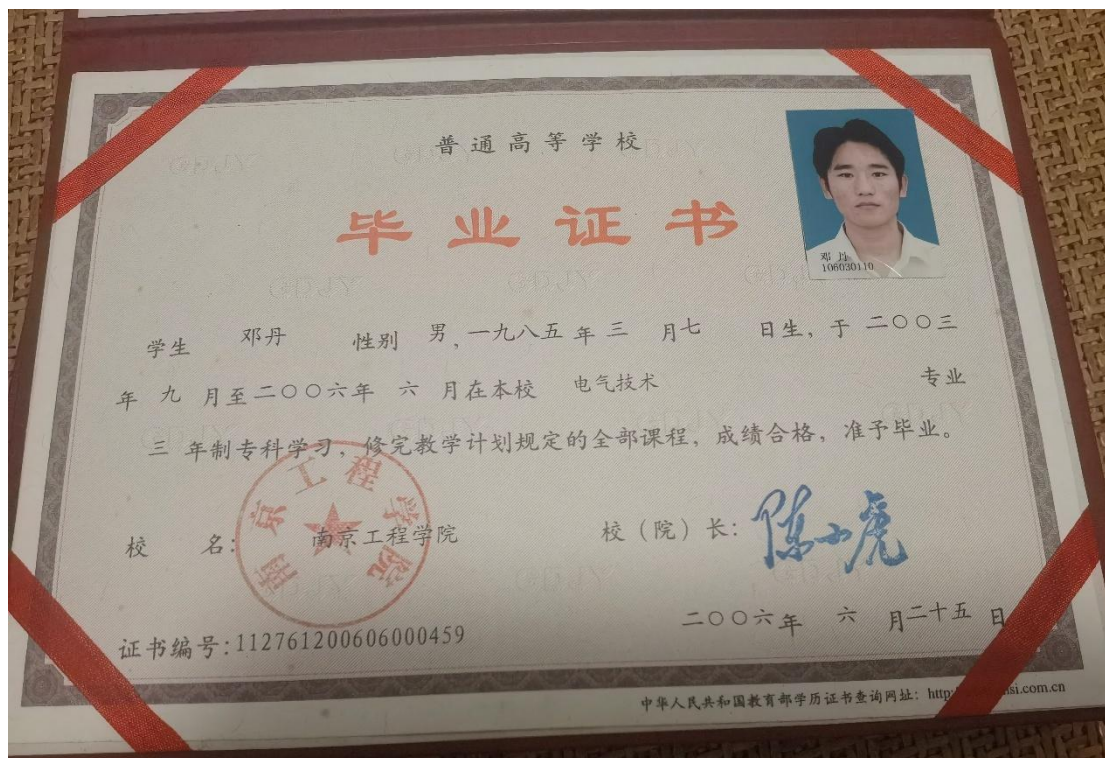 普通高等学校
毕业证书
邓丹
106030110
学生 邓丹 性别 男, 一九八五 年 三 月七 日生, 于 二〇〇三
年 九 月至二〇〇六年 六 月在本校 电气技术 专业
三 年制专科学习, 修完教学计划规定的全部课程, 成绩合格, 准予毕业。
南京工程学院
校 名: 南京工程学院 校(院)长: 陈小虎
二〇〇六年 六 月二十五 日
证书编号:112761200606000459
中华人民共和国教育部学历证书查询网址: http: si.com.cn